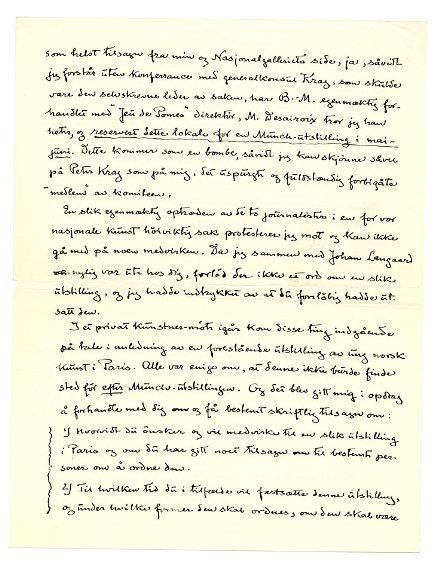 som helst tilsagn fra min og Nasjonalgalleriets side, ja, såvidt
jeg forstår uten konferranse med generalkonsul Krag, som skulde
vare den selvskrevne leder av saken, har B.-M. egenmaktig for-
handlet med "Jeu de Pomes" direktör, M. Desairoix tror jeg han
heter, og reservert dette lokale for en Münch-utstilling i mai-
juni. Dette kommer som en bombe, såvidt jeg kan skjønne såvel
på Peter Krag som på mig, det uspurgte og fuldstændig forbigåtte
"medlem" av komiteen.
En slik egenmaktig optræden av de to journalister i en for vor
nasjonale kunst høivigtig sak protesterer jeg mot og kan ikke
gå med på noen medvirken. Da jeg sammen med Johan Langaard
nylig var ute hos dig, forlød der ikke et ord om en slik
utstilling, og jeg hadde indtrykket av at du forløbig hadde ut-
satt den.
I et privat kunstner-møte igår kom disse ting indgående
på tale i anledning av en forestående utstilling av ung norsk
kunst i Paris. Alle var enige om, at denne ikke burde finde
sted før efter Münch-utstillingen. Og det blev gitt mig i opdrag
å forhandle med dig om og få bestemt skriftlig tilsagn om:
1) Hvorvidt du ønsker og vil medvirke til en slik utstilling
i Paris og om du har gitt noen tilsagn om til bestemte per-
soner om å ordne den.
2) Til hvilken tid du i tilfælde vil fastsætte denne utstilling,
og under hvilke former den skal ordnes, om den skal være